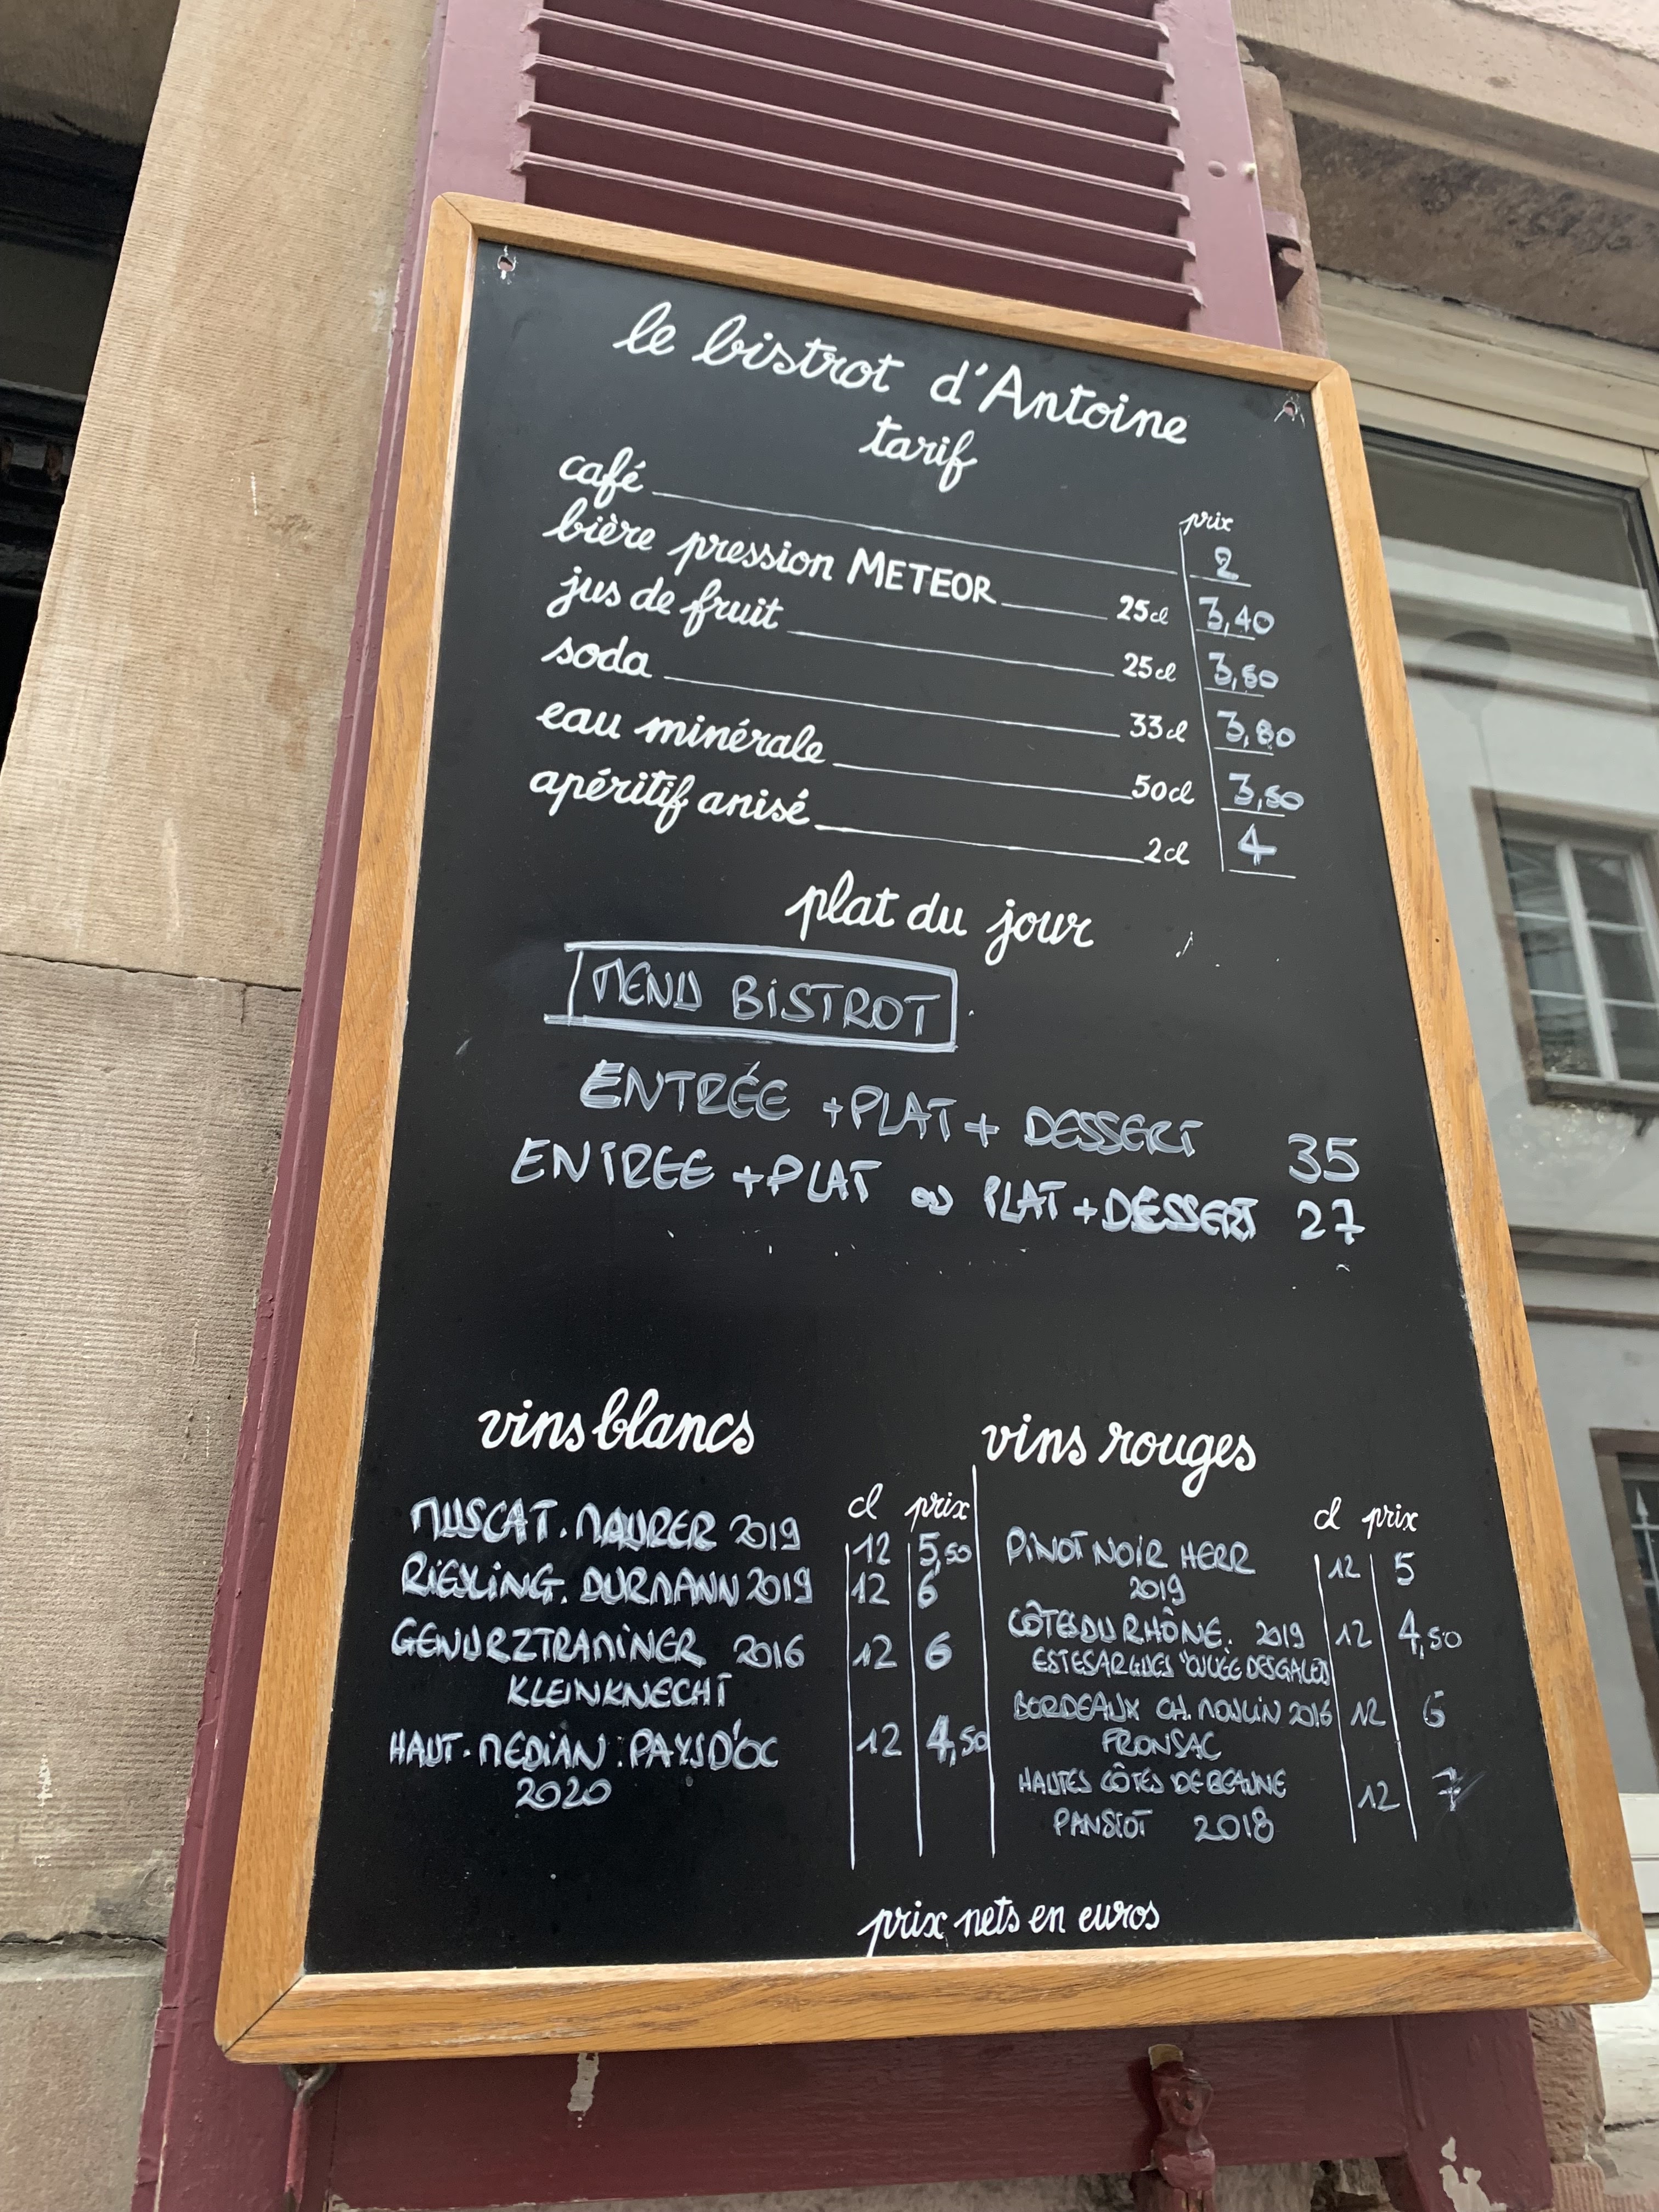 le bistrot d'Antoine
tarif
prix
café 2
bière pression METEOR 25cl 3,40
jus de fruit 25cl 3,50
soda 33cl 3,80
eau minérale 50cl 3,50
apéritif anisé 2cl 4
plat du jour
MENU BISTROT
ENTRÉE + PLAT + DESSERT 35
ENTREE + PLAT ou PLAT + DESSERT 27
vins blancs
cl prix
MUSCAT. MAURER 2019 12 5,50
RIESLING. DURMANN 2019 12 6
GEWURZTRAMINER 2016 12 6
KLEINKNECHT
HAUT. MEDIAN. PAYS D'OC 12 4,50
2020
vins rouges
cl prix
PINOT NOIR HERR 12 5
2019
CÔTES DU RHÔNE. 2019 12 4,50
ESTESARGUES "CUVÉE DES GALETS
BORDEAUX CH. MOULIN 2016 12 6
FRONSAC
HAUTES CÔTES DE BEAUNE 12 7
PANSIOT 2018
prix nets en euros